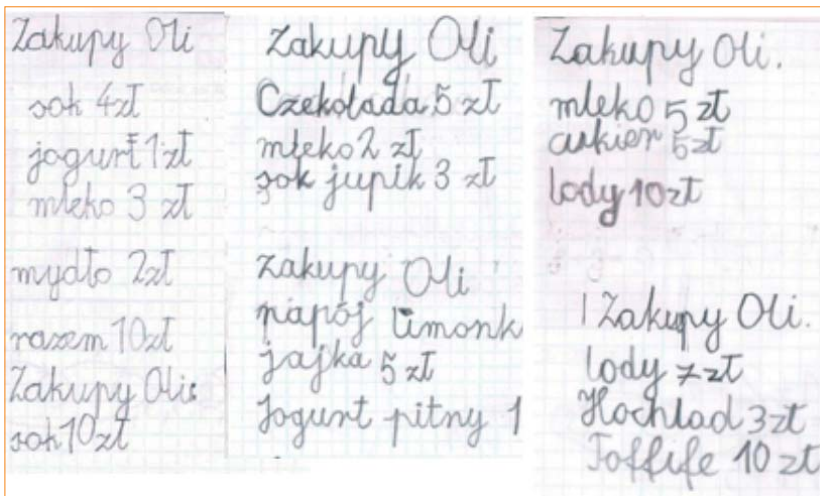 Zakupy Oli
sok 4zł
jogurt 1zł
mleko 3 zł
mydło 2zł
razem 10zł
Zakupy Oli
sok 10zł
Zakupy Oli
Czekolada 5 zł
mleko 2 zł
sok jupik 3 zł
Zakupy Oli
napój Limonk
jajka 5 zł
Jogurt pitny 1
Zakupy Oli.
mleko 5 zł
cukier 5zł
lody 10zł
Zakupy Oli.
lody 7zł
3zł
Toffife 10 zł